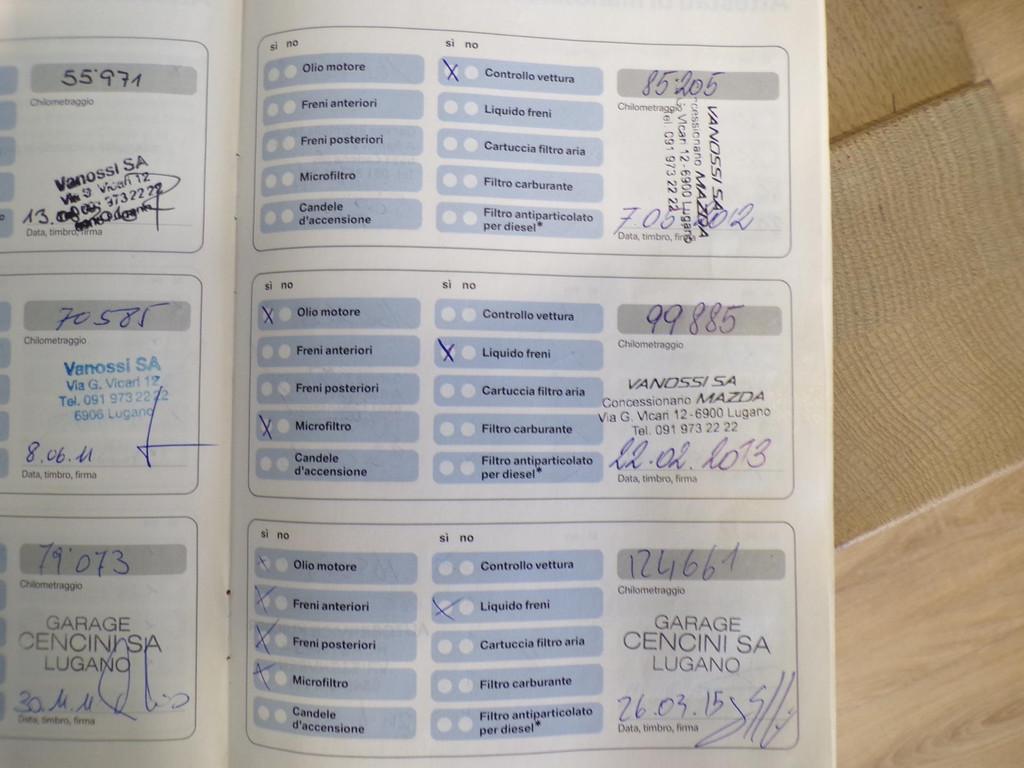 55'971
Chilometraggio
Vanossi SA
Via G. Vicari 12
091 973 22 22
13.
Data, timbro, firma
70585
Chilometraggio
Vanossi SA
Via G. Vicari 12
Tel. 091 973 22 22
6906 Lugano
8.06.11
Data, timbro, firma
79'073
Chilometraggio
GARAGE
CENCINI SA
LUGANO
30.11.11
Data, timbro, firma
sì no
Olio motore
Freni anteriori
Freni posteriori
Microfiltro
Candele
d'accensione
sì no
X Controllo vettura
Liquido freni
Cartuccia filtro aria
Filtro carburante
Filtro antiparticolato
per diesel*
85'205
Chilometraggio
VANOSSI SA
Concessionario MAZDA
Vicari 12-6900 Lugano
Tel 091 973 22 22
7.05.2012
Data, timbro, firma
sì no
X Olio motore
Freni anteriori
Freni posteriori
X Microfiltro
Candele
d'accensione
sì no
Controllo vettura
X Liquido freni
Cartuccia filtro aria
Filtro carburante
Filtro antiparticolato
per diesel*
99885
Chilometraggio
VANOSSI SA
Concessionario MAZDA
Via G. Vicari 12-6900 Lugano
Tel. 091 973 22 22
22.02.2013
Data, timbro, firma
sì no
X Olio motore
X Freni anteriori
X Freni posteriori
X Microfiltro
Candele
d'accensione
sì no
Controllo vettura
X Liquido freni
Cartuccia filtro aria
Filtro carburante
Filtro antiparticolato
per diesel*
124661
Chilometraggio
GARAGE
CENCINI SA
LUGANO
26.03.15
Data, timbro, firma